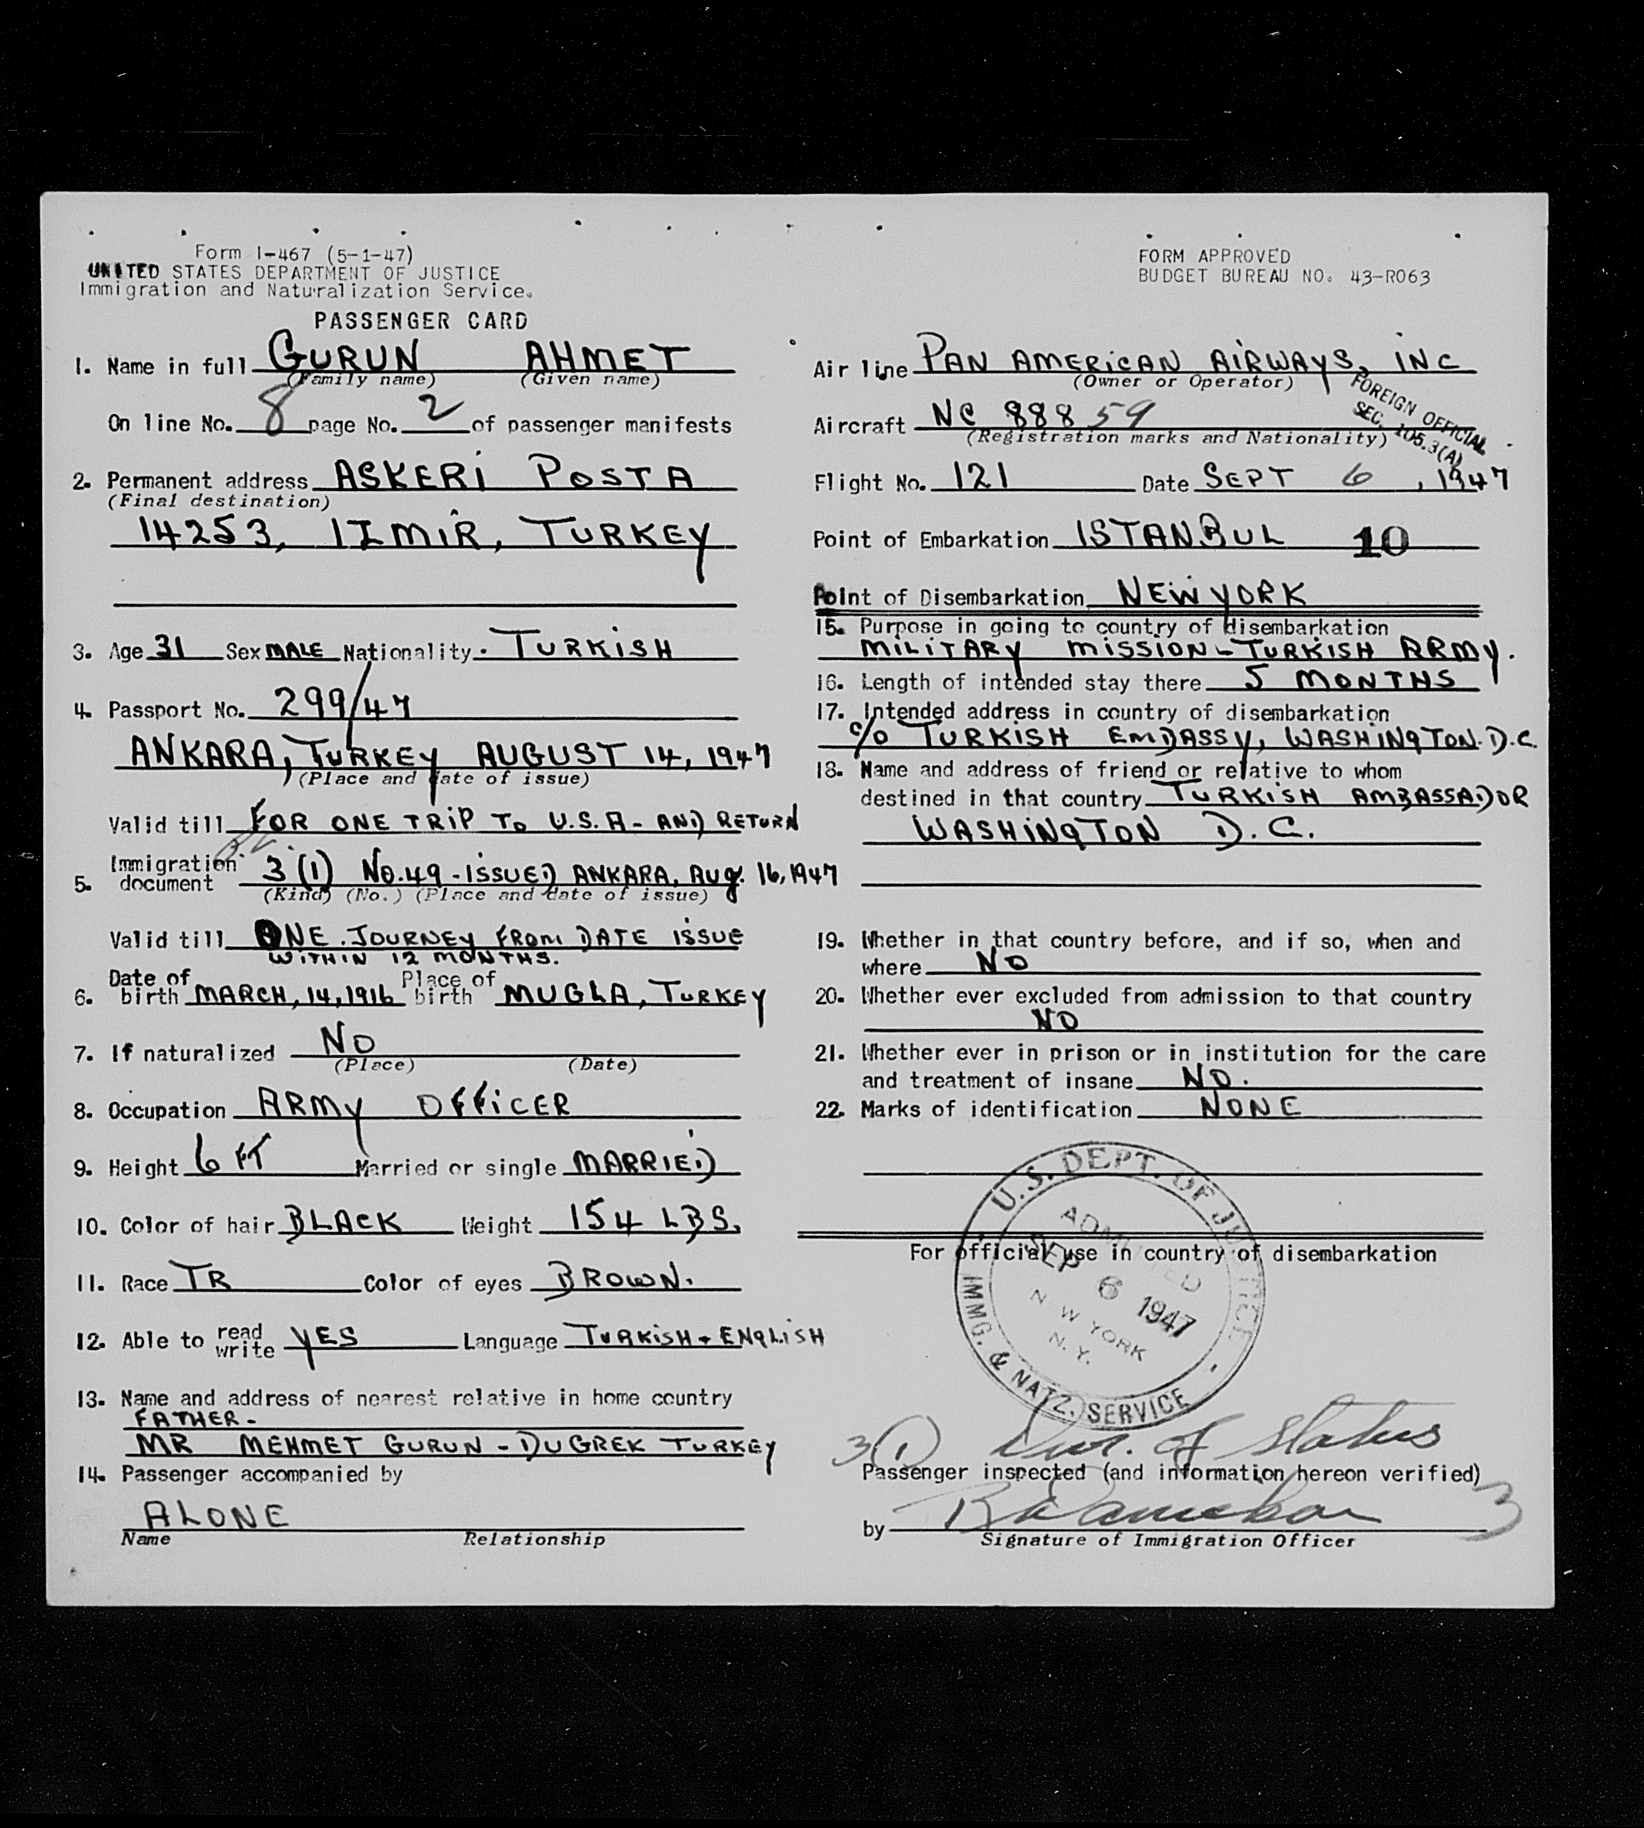 Form I-467 (5-1-47)
UNITED STATES DEPARTMENT OF JUSTICE
Immigration and Naturalization Service.
PASSENGER CARD
FORM APPROVED
BUDGET BUREAU NO. 43-R063
1. Name in full GURUN AHMET
(Family name) (Given name)
On line No. 8 page No. 2 of passenger manifests
2. Permanent address ASKERI POSTA
(Final destination)
14253, IZMIR, TURKEY
3. Age 31 Sex MALE Nationality TURKISH
4. Passport No. 299/47
ANKARA, TURKEY AUGUST 14, 1947
(Place and date of issue)
Valid till FOR ONE TRIP TO U.S.A - AND RETURN
5. Immigration document 3 (1) No. 49 - ISSUED ANKARA, AUG. 16, 1947
(Kind) (No.) (Place and date of issue)
Valid till ONE JOURNEY FROM DATE ISSUE
WITHIN 12 MONTHS.
6. Date of birth MARCH, 14, 1916 Place of birth MUGLA, TURKEY
7. If naturalized NO
(Place) (Date)
8. Occupation ARMY OFFICER
9. Height 6 FT Married or single MARRIED
10. Color of hair BLACK Weight 154 LBS.
11. Race TR Color of eyes BROWN.
12. Able to read write YES Language TURKISH + ENGLISH
13. Name and address of nearest relative in home country
FATHER -
MR MEHMET GURUN - DUGREK TURKEY
14. Passenger accompanied by
ALONE
Name Relationship
Air line PAN AMERICAN AIRWAYS, INC
(Owner or Operator)
FOREIGN OFFICIAL
SEC. 105.3(A)
Aircraft NC 88859
(Registration marks and Nationality)
Flight No. 121 Date SEPT 6, 1947
Point of Embarkation ISTANBUL 10
Point of Disembarkation NEW YORK
15. Purpose in going to country of disembarkation
MILITARY MISSION - TURKISH ARMY.
16. Length of intended stay there 5 MONTHS
17. Intended address in country of disembarkation
c/o TURKISH EMBASSY, WASHINGTON. D.C.
18. Name and address of friend or relative to whom
destined in that country TURKISH AMBASSADOR
WASHINGTON D.C.
19. Whether in that country before, and if so, when and
where NO
20. Whether ever excluded from admission to that country
NO
21. Whether ever in prison or in institution for the care
and treatment of insane NO.
22. Marks of identification NONE
For official use in country of disembarkation
U.S. DEPT. OF JUSTICE
ADMITTED
SEP 6 1947
NEW YORK
N. Y.
IMMG. & NATZ. SERVICE
3(1) Dur. of Status
Passenger inspected (and information hereon verified)
by
Signature of Immigration Officer